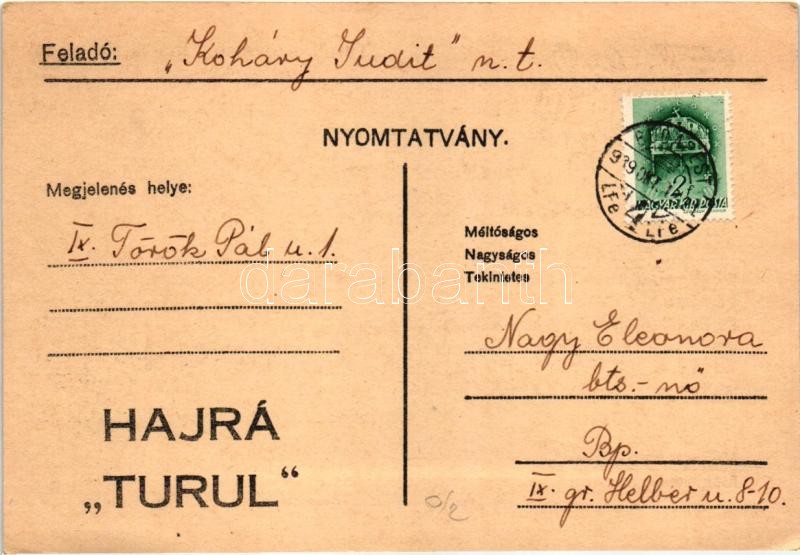 Feladó: „Koháry Judit" n. t.
NYOMTATVÁNY.
Megjelenés helye:
IX. Török Pál u. 1.
Méltóságos
Nagyságos
Tekintetes
Nagy Eleonora
bts.-nő
Bp.
IX. gr. Helber u. 8-10.
HAJRÁ
„TURUL"
2f
MAGYAR KIR. POSTA
BUDAPEST
939 OKT.
darabanth
0/2